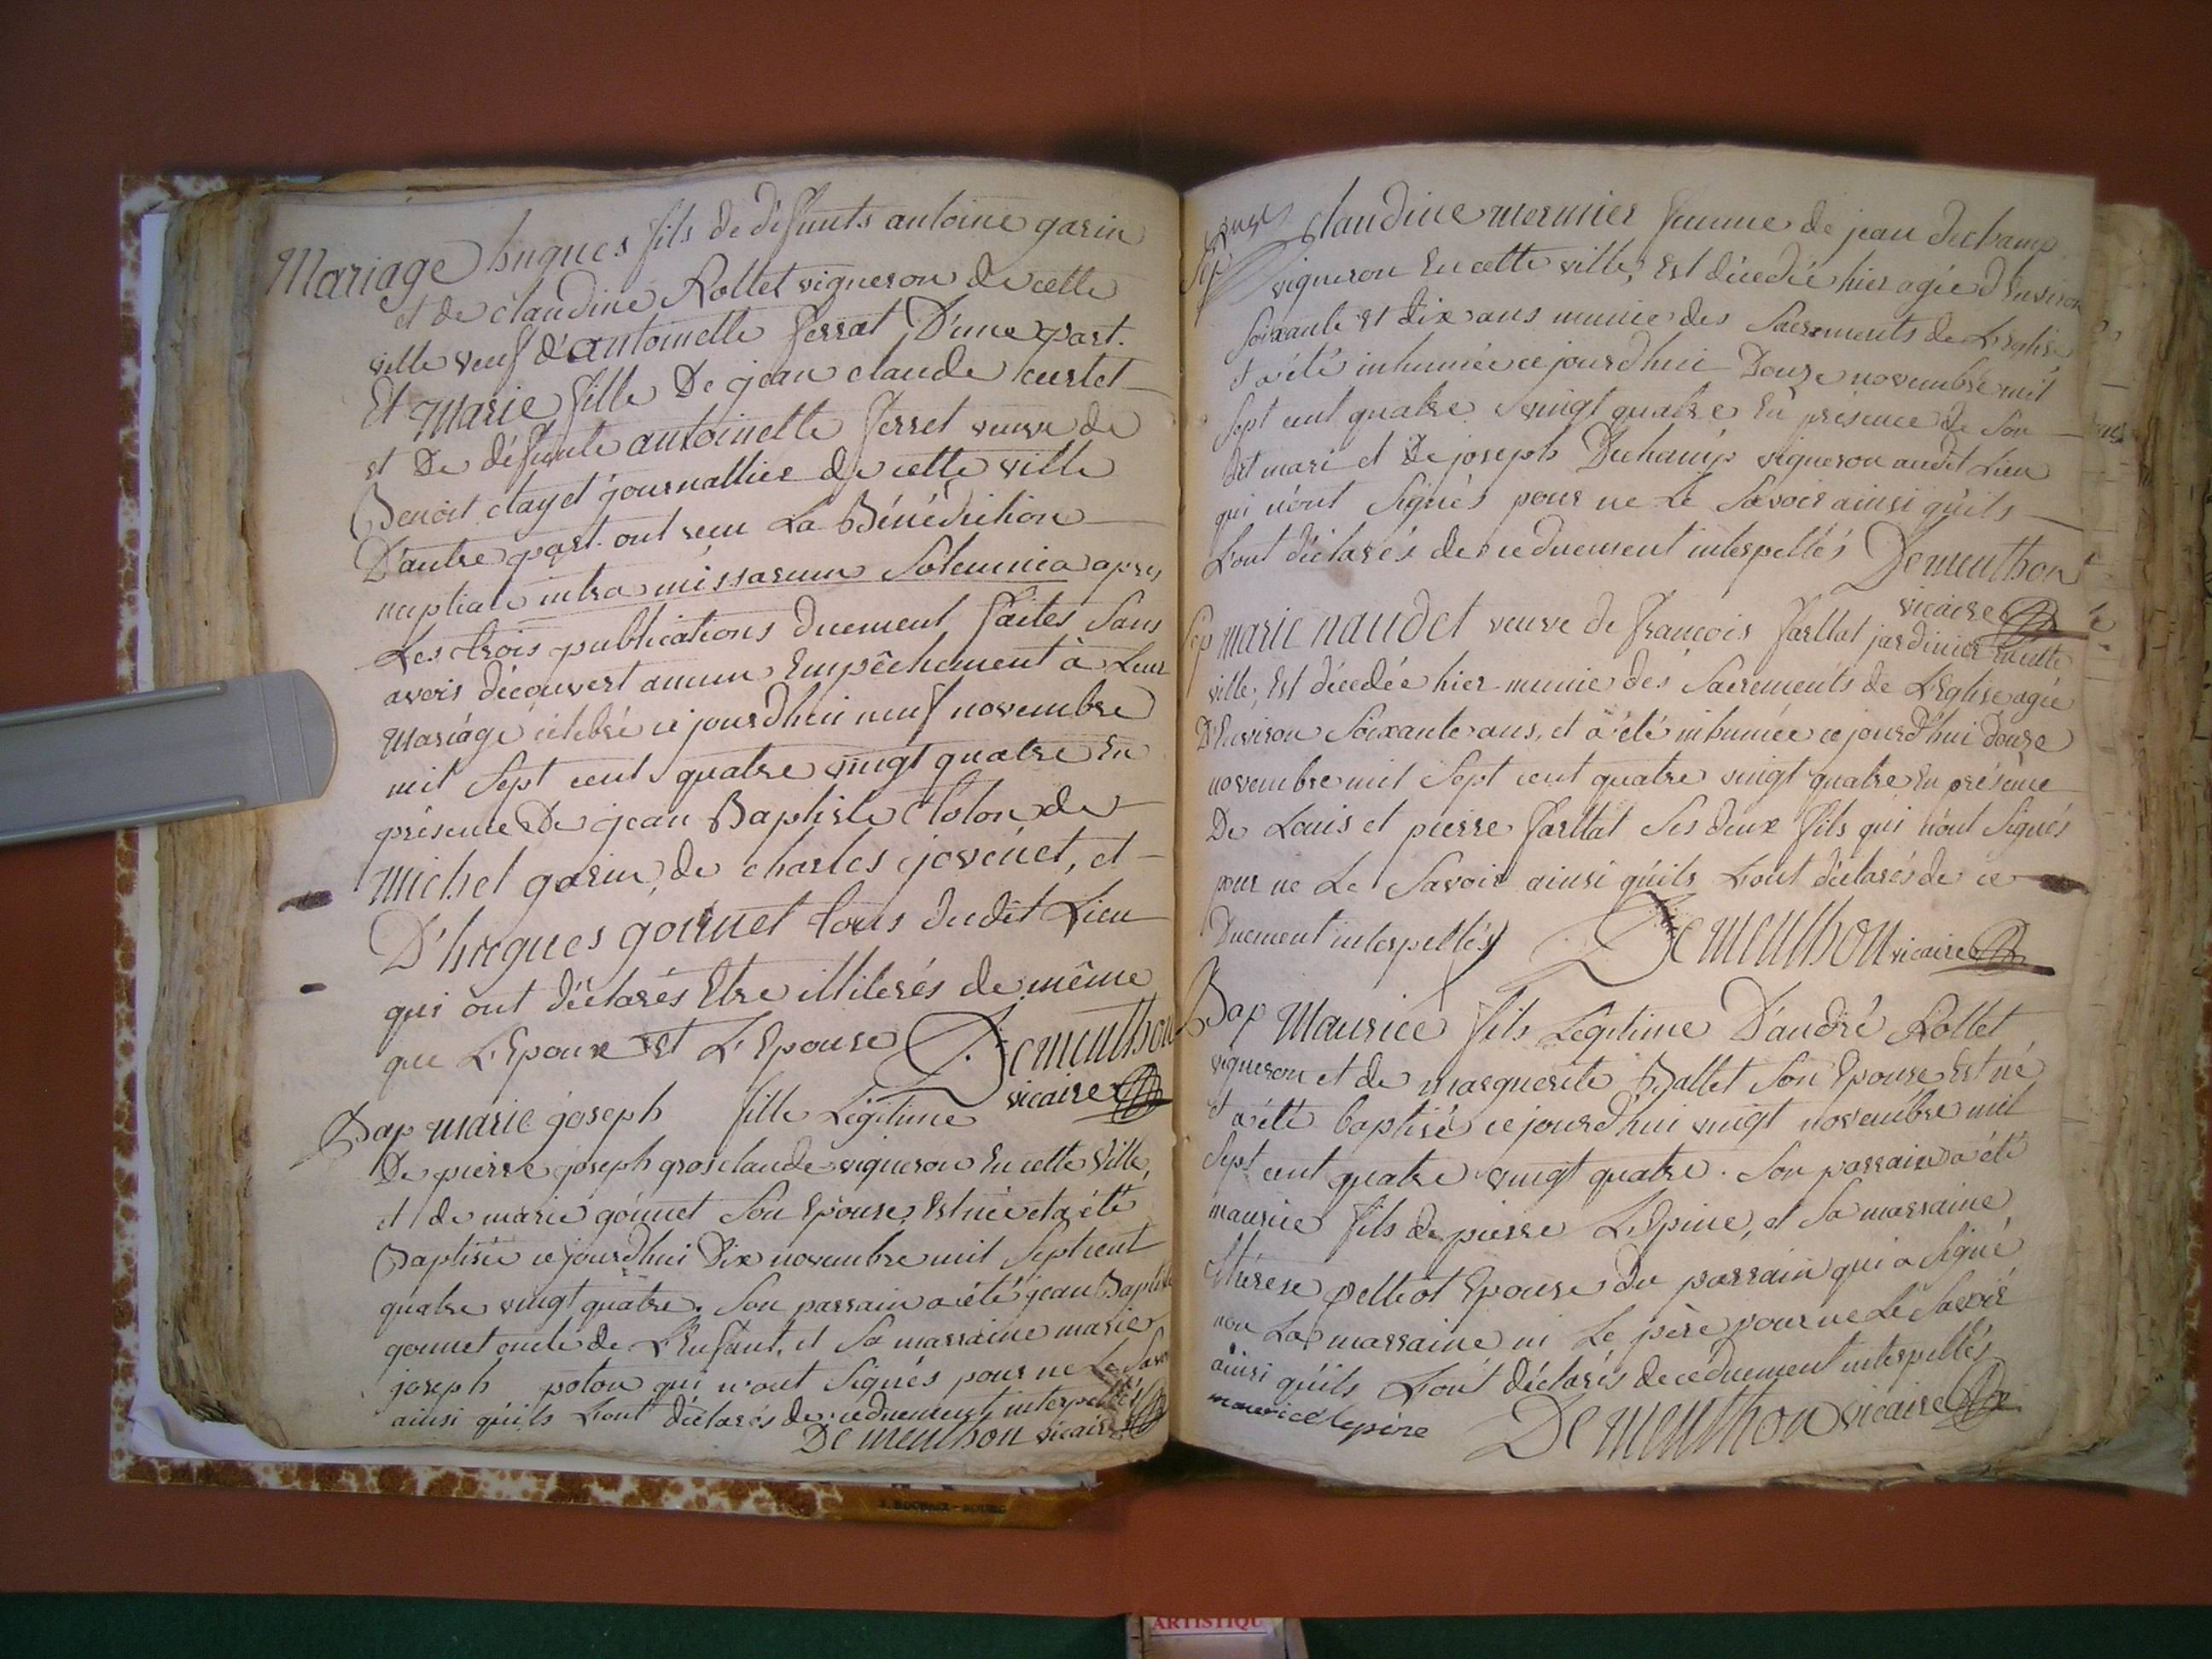 Mariage hugues fils de défunts antoine garin
et de claudine Rollet vigneron de cette
ville veuf d'antoinette ferrat D'une part.
Et Marie fille De jean claude curtet
et De défunte antoinette ferret veuve de
Benoit clayet journallier de cette ville
D'autre part ont recu La Bénédiction
nuptiale intra missarum Solemnia apres
Les trois publications duement faites Sans
avoir découvert aucun Empêchement à Leur
Mariage célebré ce jourd'hui neuf novembre
mil Sept cent quatre vingt quatre En
présence De jean Baptiste de
Michel garin, de charles jovenet, et
D'hugues gonnet tous dudit Lieu
qui ont déclarés Etre illiterés de même
que L'Epoux Et L'Epouse Dementhon
vicaire
Bap marie joseph fille Légitime
De pierre joseph grosclaude vigneron En cette Ville,
et de marie gonnet Son Epouse, Est née et a été
Baptisée ce jourd'hui Dix novembre mil Sept cent
quatre vingt quatre. Son parrain a été jean Baptiste
gonnet oncle de L'Enfant, et Sa marraine marie
joseph poton qui n'ont Signés pour ne Le Savoir
ainsi qu'ils L'ont déclarés de ce duement interpellés
De menthon vicaire
Sep claudine mermier femme de jean duchamp
vigneron En cette ville, Est décedée hier agée d'Environ
Soixante et dix ans munie des Sacrements de L'Eglise
et a été inhumée ce jourd'hui Douze novembre mil
Sept cent quatre vingt quatre En présence de Son
dit mari et De joseph Duchamp vigneron audit Lieu
qui n'ont Signés pour ne Le Savoir ainsi qu'ils
L'ont déclarés de ce duement interpellés Dementhon
vicaire
Sep marie naudet veuve de françois farltat jardinier En cette
ville, Est décedée hier munie des Sacrements de L'Eglise agée
D'Environ Soixante ans, et a été inhumée ce jourd'hui douze
novembre mil Sept cent quatre vingt quatre En présence
De Louis et pierre farltat Ses deux fils qui n'ont Signés
pour ne Le Savoir ainsi qu'ils L'ont déclarés de ce
Duement interpellés Dementhon vicaire
Bap Maurice fils Légitime D'andré Rollet
vigneron et de marguerite Ballet Son Epouse Est né
et a été baptisé ce jourd'hui vingt novembre mil
Sept cent quatre vingt quatre. Son parrain a été
maurice fils de pierre L'Epine, et Sa marraine
therese pelliot Epouse du parrain qui a Signé
non La marraine ni Le père pour ne Le Savoir
ainsi qu'ils L'ont déclarés de ce duement interpellés
maurice lepine De menthon vicaire
ARTISTIQU